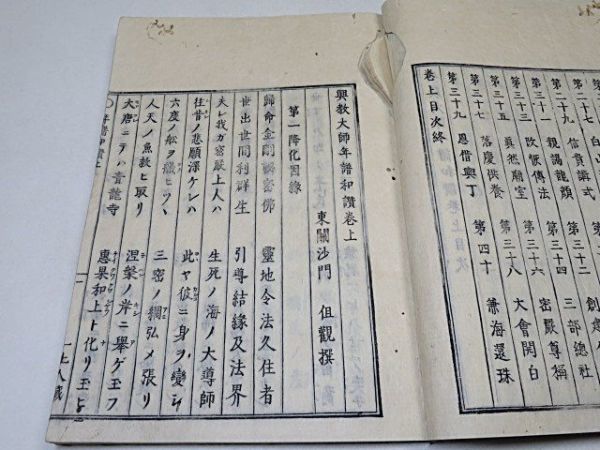 第三十一 親謁龍顔 第三十二
第三十三 改恢傳法 第三十四 三部總社
第三十五 眞然廟室 第三十六 密嚴尊稱
第三十七 落慶供養 第三十八 大會開白
第三十九 恩借輿丁 第四十 兼海還珠
卷上目次終
興教大師年譜和讚卷上
東關沙門 但觀撰
第一降化因縁
歸命金剛祕密佛 靈地令法久住者
世出世間利群生 引導結縁及法界
夫レ我ガ密嚴上人ハ 生死ノ海ノ大導師
往昔ノ悲願深ケレハ 此ヤ彼ニ身ヲ變シ
六度ノ船ヲ艤ヒツヽ 三密ノ網弘メ張リ
人天ノ魚救ヒ取リ 涅槃ノ岸ニ擧ゲ玉フ
大唐ニテハ青龍寺 惠果和上ト化リ玉ひ